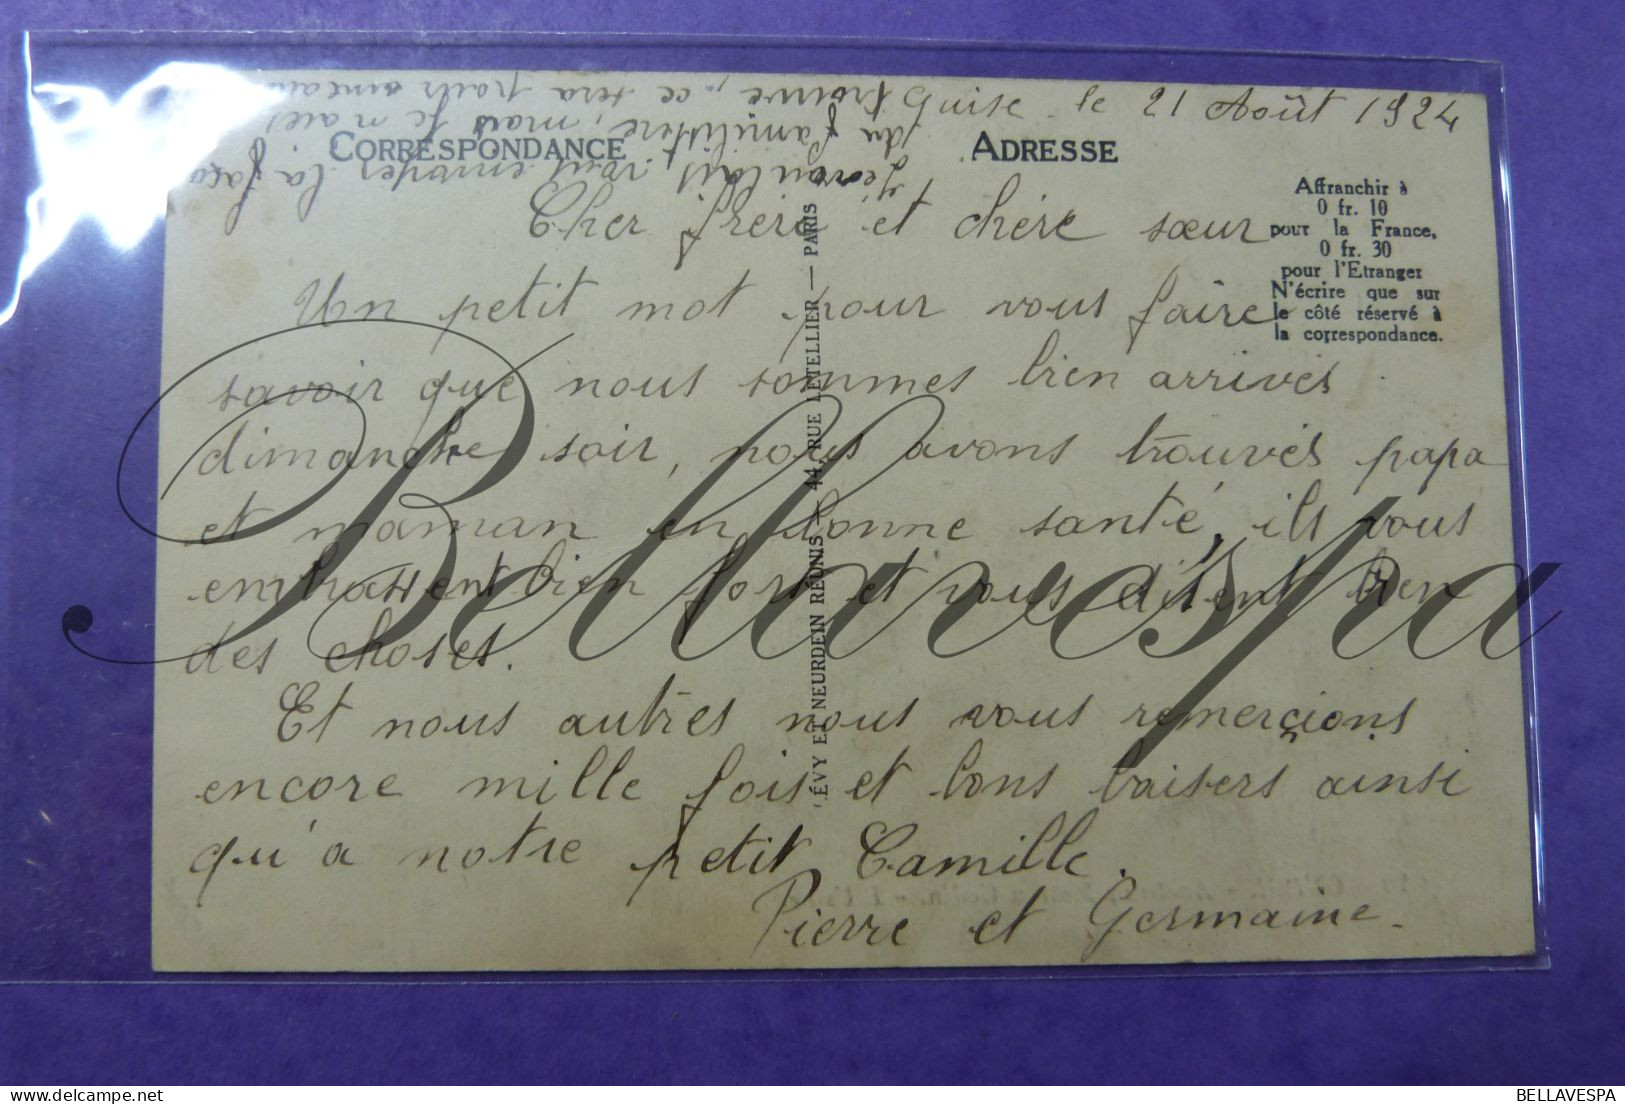 Guise le 21 Août 1924
CORRESPONDANCE
ADRESSE
Je voulais vous envoyer la faça
du familistère, mais je n'ai
trouvé, ce sera pour
Affranchir à
0 fr. 10
pour la France,
0 fr. 30
pour l'Etranger
N'écrire que sur
le côté réservé à
la correspondance.
Cher frère et chère sœur
Un petit mot pour vous faire
savoir que nous sommes bien arrivés
dimanche soir, nous avons trouvés papa
et maman en bonne santé, ils vous
embrassent bien fort et vous disent bien
des choses.
Et nous autres nous vous remerçions
encore mille fois et bons baisers ainsi
qu'à notre petit Camille.
Pierre et Germaine.
LÉVY ET NEURDEIN RÉUNIS - 44, RUE LETELLIER — PARIS
Bellavespa
BELLAVESPA